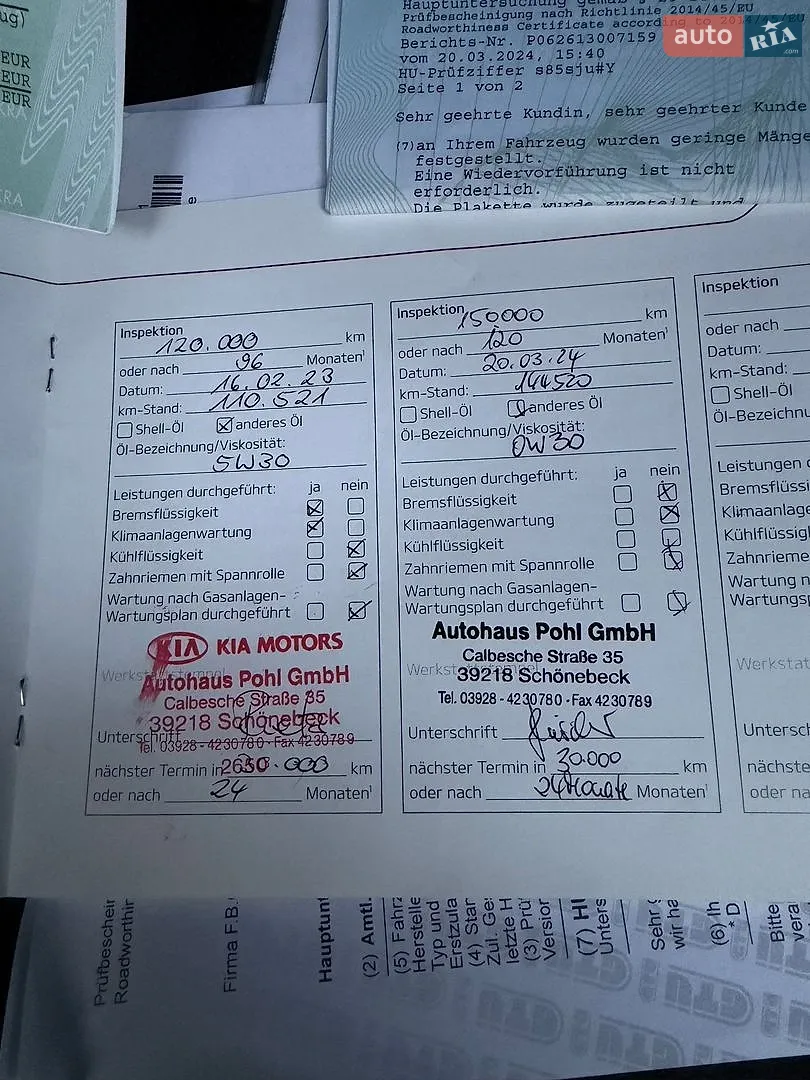 ug)
EUR
EUR
EUR
Hauptuntersuchung gemäß §
Prüfbescheinigung nach Richtlinie 2014/45/EU
Roadworthiness Certificate according to 2014/45/EU
Berichts-Nr. P062613007159
vom 20.03.2024, 15:40
HU-Prüfziffer s85sju#Y
Seite 1 von 2
Sehr geehrte Kundin, sehr geehrter Kunde
(7)an Ihrem Fahrzeug wurden geringe Mänge
festgestellt.
Eine Wiedervorführung ist nicht
erforderlich.
Die Plakette wurde zugeteilt und
auto RIA .com
Inspektion
120.000 km
oder nach 96 Monaten¹
Datum: 16.02.23
km-Stand: 110.521
Shell-Öl anderes Öl
Öl-Bezeichnung/Viskosität:
5W30
Leistungen durchgeführt: ja nein
Bremsflüssigkeit
Klimaanlagenwartung
Kühlflüssigkeit
Zahnriemen mit Spannrolle
Wartung nach Gasanlagen-
Wartungsplan durchgeführt
KIA KIA MOTORS
Werkstattstempel
Autohaus Pohl GmbH
Calbesche Straße 35
39218 Schönebeck
Unterschrift
Tel. 03928 - 4230780 · Fax 4230789
nächster Termin in 000 km
oder nach 24 Monaten¹
Inspektion
150000 km
oder nach 120 Monaten¹
Datum: 20.03.24
km-Stand: 144520
Shell-Öl anderes Öl
Öl-Bezeichnung/Viskosität:
0W30
Leistungen durchgeführt: ja nein
Bremsflüssigkeit
Klimaanlagenwartung
Kühlflüssigkeit
Zahnriemen mit Spannrolle
Wartung nach Gasanlagen-
Wartungsplan durchgeführt
Autohaus Pohl GmbH
Calbesche Straße 35
Werkstattstempel
39218 Schönebeck
Tel. 03928 - 4230780 · Fax 4230789
Unterschrift
nächster Termin in 30.000 km
oder nach 24 Monate Monaten¹
Inspektion
oder nach
Datum:
km-Stand:
Shell-Öl
Öl-Bezeichn
Leistungen
Bremsflüssi
Klimaanlage
Kühlflüssig
Zahnriemen
Wartung n
Wartungsp
Werkstat
Untersch
nächste
oder na
Prüfbeschein
Roadworthir
Firma F.B.
Hauptun
(2) Amtl.
(5) Fahrz
Herstelle
Typ und
Erstzula
(4) Star
Zul. Ge
letzte H
(3) Prü
Version
(7) HI
Unters
Sehr g
wir ha
(6) Ih
* D
Bitte
vera
GTÜ